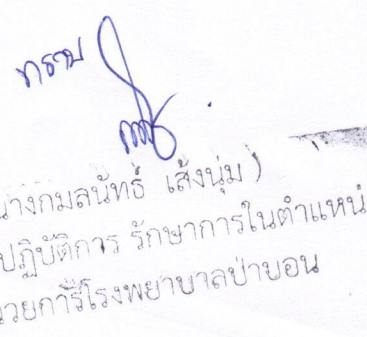 ทราบ
นางกมลนัทธ์ เส้งนุ่ม)
ปฏิบัติการ รักษาการในตำแหน่
วยการโรงพยาบาลป่าบอน